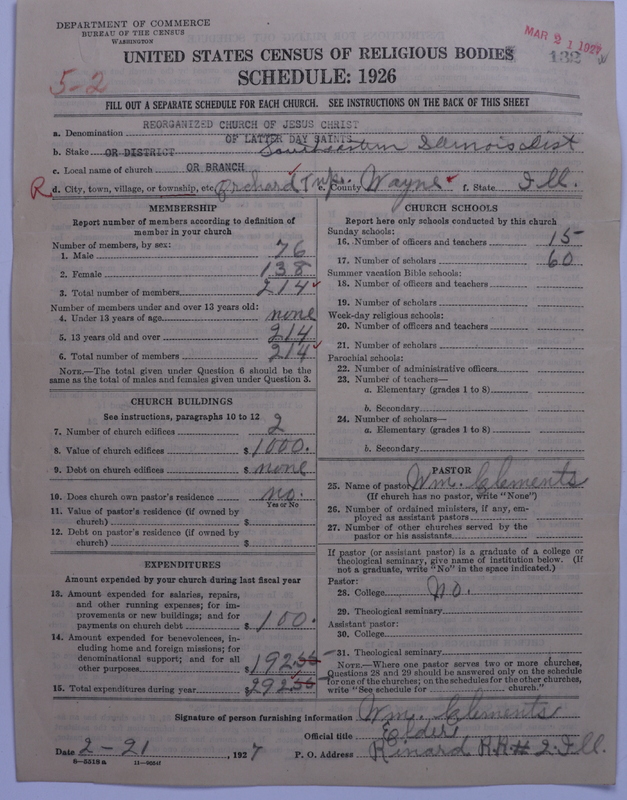 DEPARTMENT OF COMMERCE
BUREAU OF THE CENSUS
WASHINGTON
MAR 21 1927
132
UNITED STATES CENSUS OF RELIGIOUS BODIES
SCHEDULE: 1926
5-2
FILL OUT A SEPARATE SCHEDULE FOR EACH CHURCH. SEE INSTRUCTIONS ON THE BACK OF THIS SHEET
a. Denomination REORGANIZED CHURCH OF JESUS CHRIST
OF LATTER DAY SAINTS
b. Stake OR DISTRICT Southeastern Illinois Dist
c. Local name of church OR BRANCH
R d. City, town, village, or township, etc. Orchard Twp. e. County Wayne f. State Ill.
MEMBERSHIP
Report number of members according to definition of
member in your church
Number of members, by sex:
1. Male 76
2. Female 138
3. Total number of members 214
Number of members under and over 13 years old:
4. Under 13 years of age none
5. 13 years old and over 214
6. Total number of members 214
NOTE.—The total given under Question 6 should be the
same as the total of males and females given under Question 3.
CHURCH BUILDINGS
See instructions, paragraphs 10 to 12
7. Number of church edifices 2
8. Value of church edifices $ 1000.
9. Debt on church edifices $ none
10. Does church own pastor's residence no.
Yes or No
11. Value of pastor's residence (if owned by
church) $
12. Debt on pastor's residence (if owned by
church) $
EXPENDITURES
Amount expended by your church during last fiscal year
13. Amount expended for salaries, repairs,
and other running expenses; for im-
provements or new buildings; and for
payments on church debt $ 100.
14. Amount expended for benevolences, in-
cluding home and foreign missions; for
denominational support; and for all
other purposes $ 192
15. Total expenditures during year $ 292
CHURCH SCHOOLS
Report here only schools conducted by this church
Sunday schools:
16. Number of officers and teachers 15
17. Number of scholars 60
Summer vacation Bible schools:
18. Number of officers and teachers
19. Number of scholars
Week-day religious schools:
20. Number of officers and teachers
21. Number of scholars
Parochial schools:
22. Number of administrative officers
23. Number of teachers—
a. Elementary (grades 1 to 8)
b. Secondary
24. Number of scholars—
a. Elementary (grades 1 to 8)
b. Secondary
PASTOR
25. Name of pastor Wm. Clements
(If church has no pastor, write "None")
26. Number of ordained ministers, if any, em-
ployed as assistant pastors
27. Number of other churches served by the
pastor or his assistants
If pastor (or assistant pastor) is a graduate of a college or
theological seminary, give name of institution below. (If
not a graduate, write "No" in the space indicated.)
Pastor:
28. College No.
29. Theological seminary
Assistant pastor:
30. College
31. Theological seminary
NOTE.—Where one pastor serves two or more churches,
Questions 28 and 29 should be answered only on the schedule
for one of the churches; on the schedules for the other churches,
write "See schedule for church."
Signature of person furnishing information Wm. Clements
Official title Elder
Date 2-21, 1927 P. O. Address Rinard R.R# 2. Ill.
8—5518a